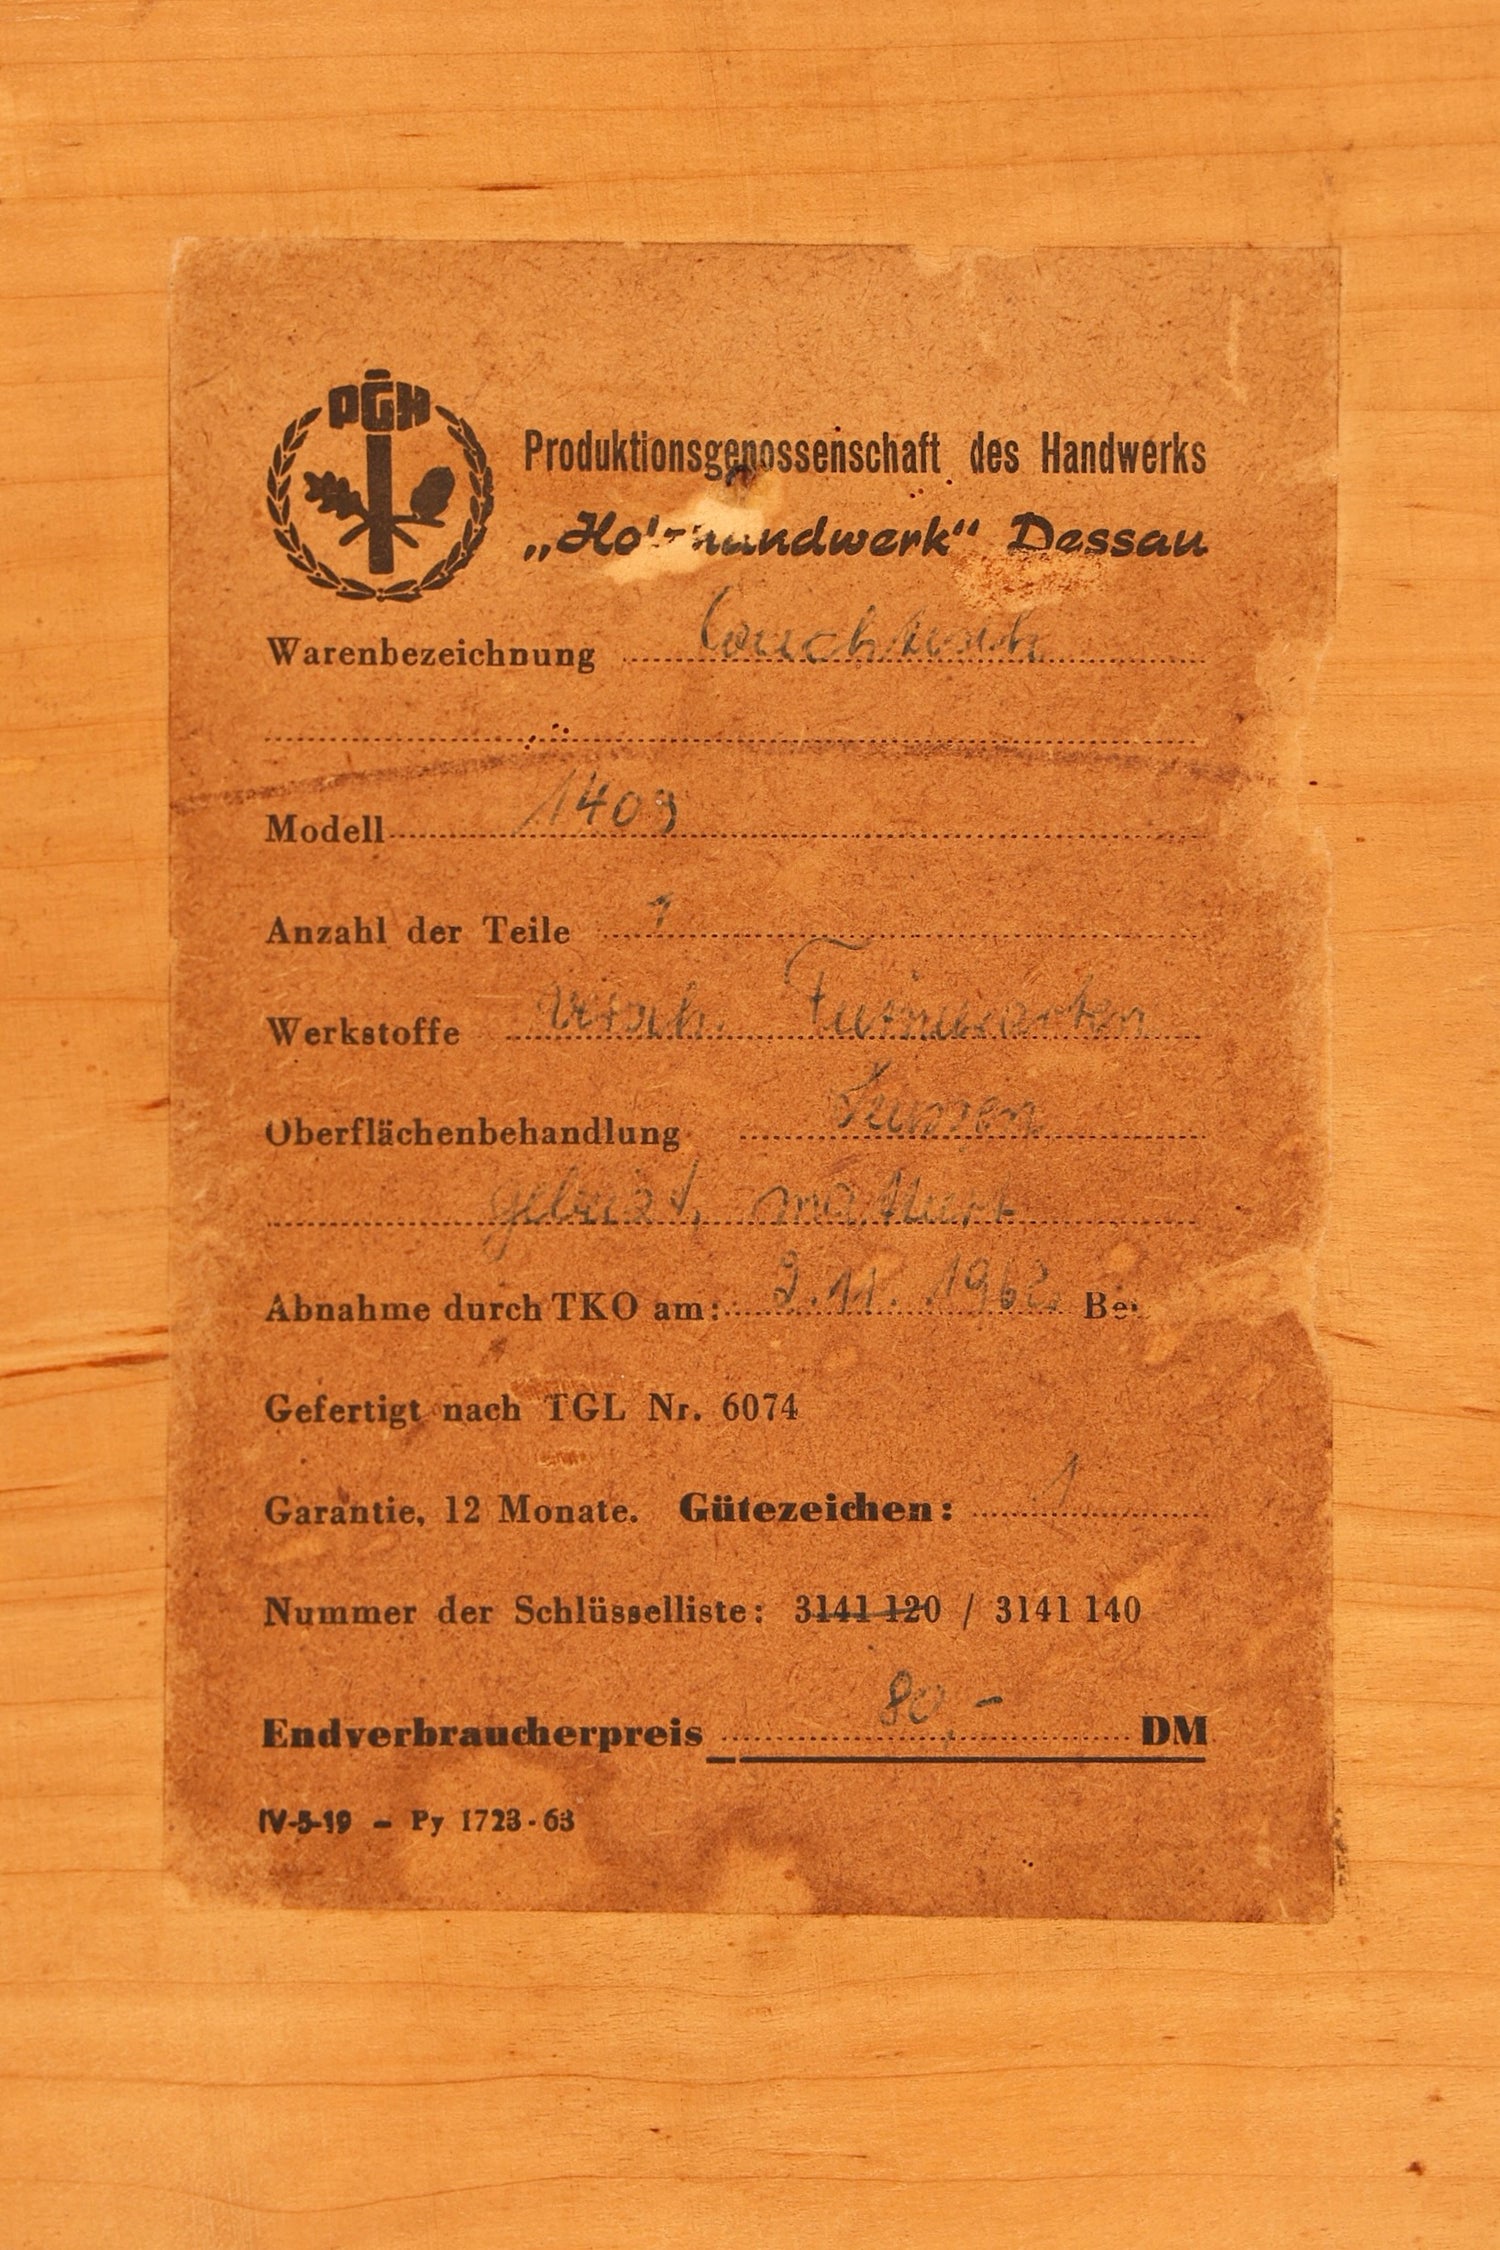 PGH
Produktionsgenossenschaft des Handwerks
„Holzhandwerk“ Dessau
Warenbezeichnung Couchtisch
Modell 1409
Anzahl der Teile 1
Werkstoffe versch. Furnierarten
Oberflächenbehandlung
gebeizt, mattiert
Abnahme durch TKO am: 9.11.1962
Gefertigt nach TGL Nr. 6074
Garantie, 12 Monate. Gütezeichen: 1
Nummer der Schlüsselliste: 3141 120 / 3141 140
Endverbraucherpreis 80,- DM
IV-5-19 - Py 1723-63